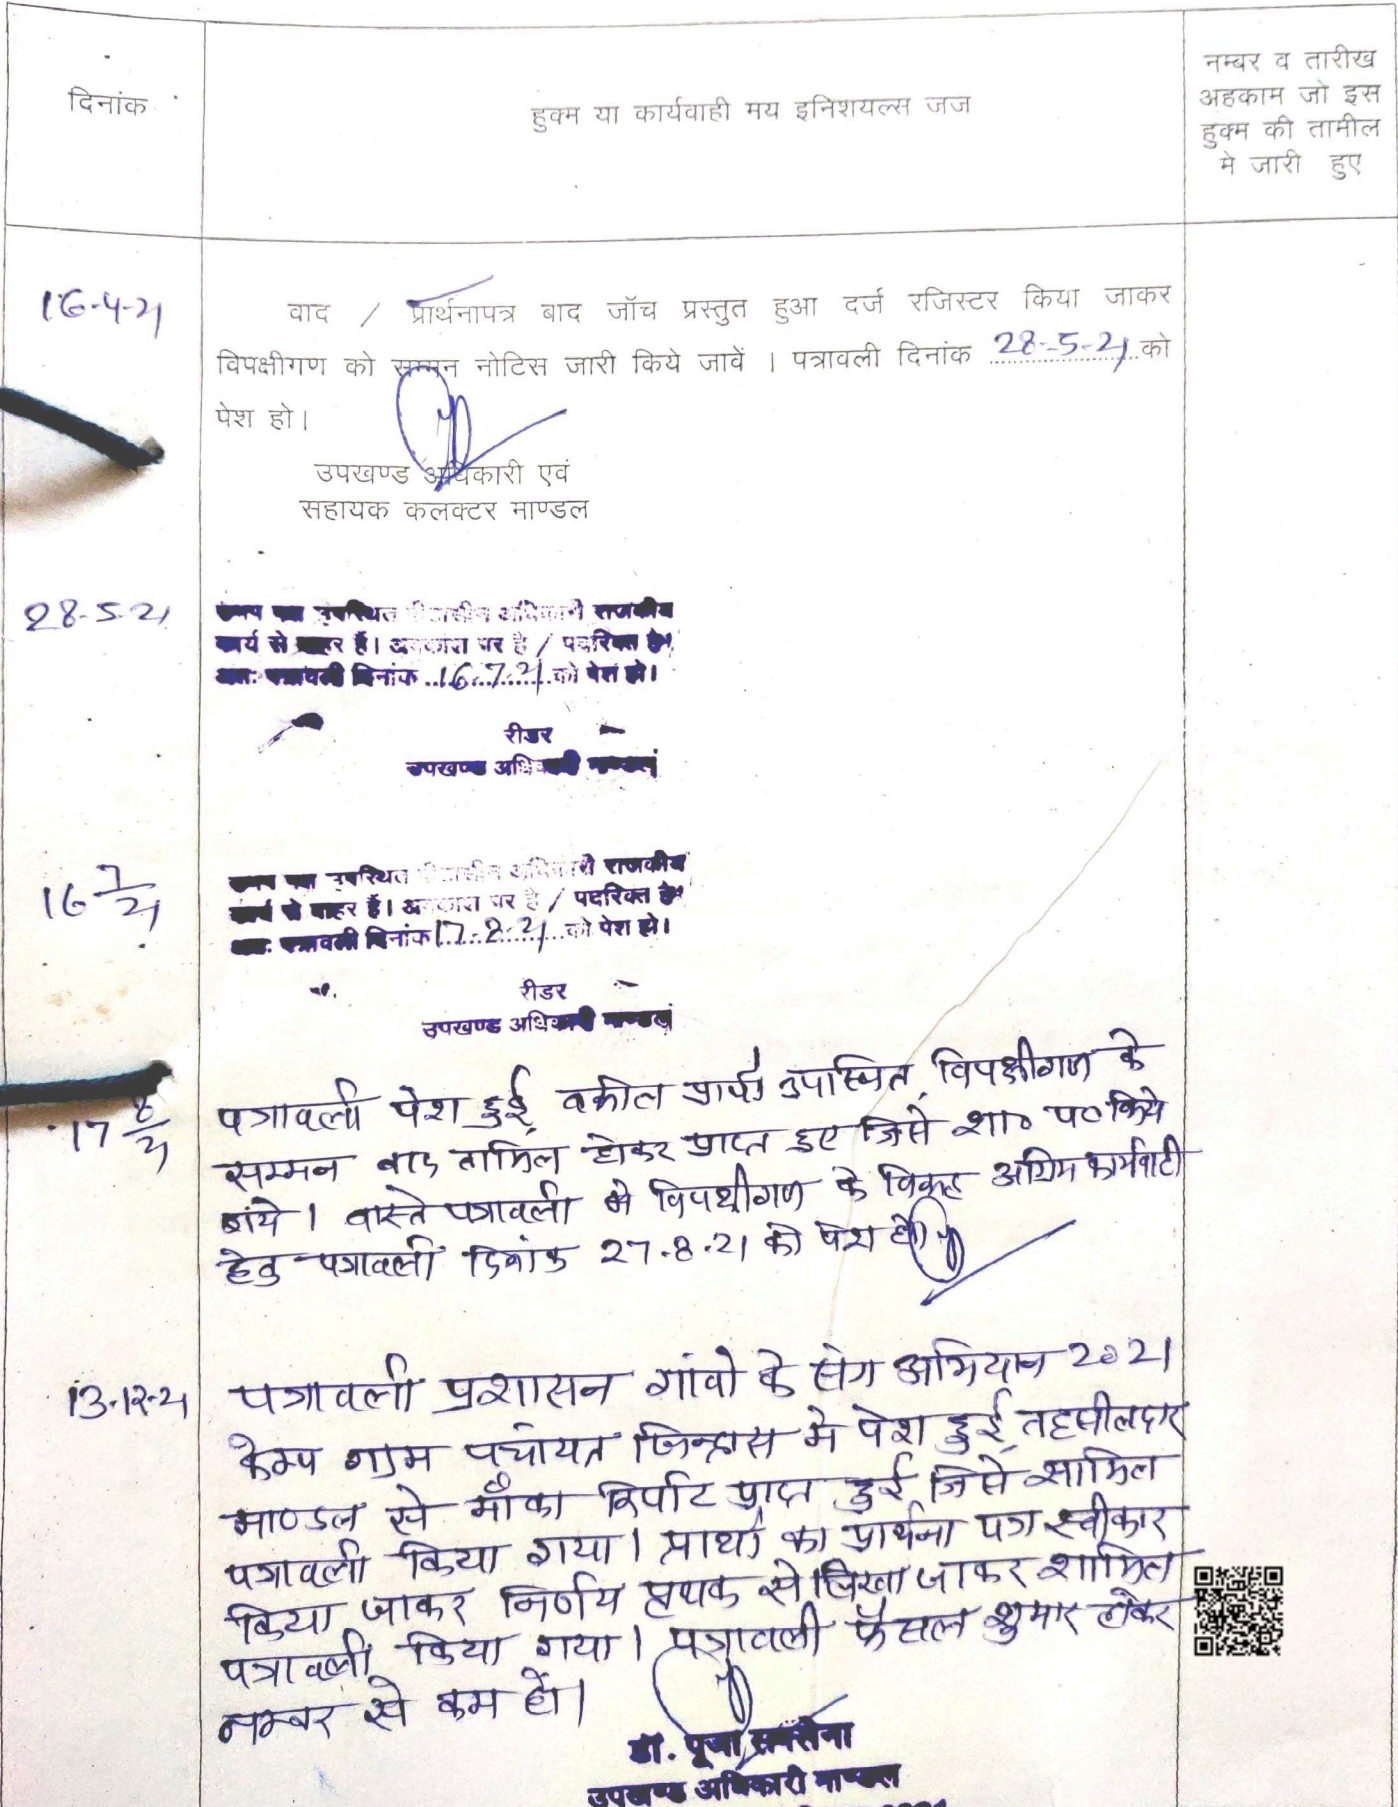 दिनांक
हुक्म या कार्यवाही मय इनिशयल्स जज
नम्बर व तारीख
अहकाम जो इस
हुक्म की तामील
मे जारी हुए
16-4-21
वाद / प्रार्थनापत्र बाद जॉच प्रस्तुत हुआ दर्ज रजिस्टर किया जाकर
विपक्षीगण को सम्मन नोटिस जारी किये जावें । पत्रावली दिनांक 28-5-21 को
पेश हो।
उपखण्ड अधिकारी एवं
सहायक कलक्टर माण्डल
28-5-21
उपस्थित अधिकारी राजकीय
कार्य से बाहर हैं। अवकाश पर है / पदरिक्त है।
अतः पत्रावली दिनांक 16.7.21 को पेश हो।
रीडर
उपखण्ड अधिकारी माण्डल
16 7/21
उपस्थित अधिकारी राजकीय
कार्य से बाहर हैं। अवकाश पर है / पदरिक्त है।
अतः पत्रावली दिनांक 17-8-21 को पेश हो।
रीडर
उपखण्ड अधिकारी माण्डल
17 8/21
पत्रावली पेश हुई, वकील प्रार्थी उपस्थित, विपक्षीगण के
सम्मन बाद तामिल होकर प्राप्त हुए जिसे शा० प० किये
गये । वास्ते पत्रावली मे विपक्षीगण के विरूद्ध अग्रिम कार्यवाही
हेतु पत्रावली दिनांक 27.8.21 को पेश हो
13-12-21
पत्रावली प्रशासन गांवो के संग अभियान 2021
केम्प ग्राम पंचायत में पेश हुई, तहसीलदार
माण्डल से मौका रिर्पोट प्राप्त हुई जिसे सामिल
पत्रावली किया गया। प्रार्थी का प्रार्थना पत्र स्वीकार
किया जाकर निर्णय प्रथक से लिखा जाकर शामिल
पत्रावली किया गया। पत्रावली फैसल शुमार होकर
नम्बर से कम हो।
डॉ. पूजा सक्सेना
उपखण्ड अधिकारी माण्डल